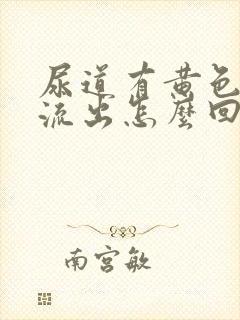 尿道有黄色
流出怎麼回
南宫敏